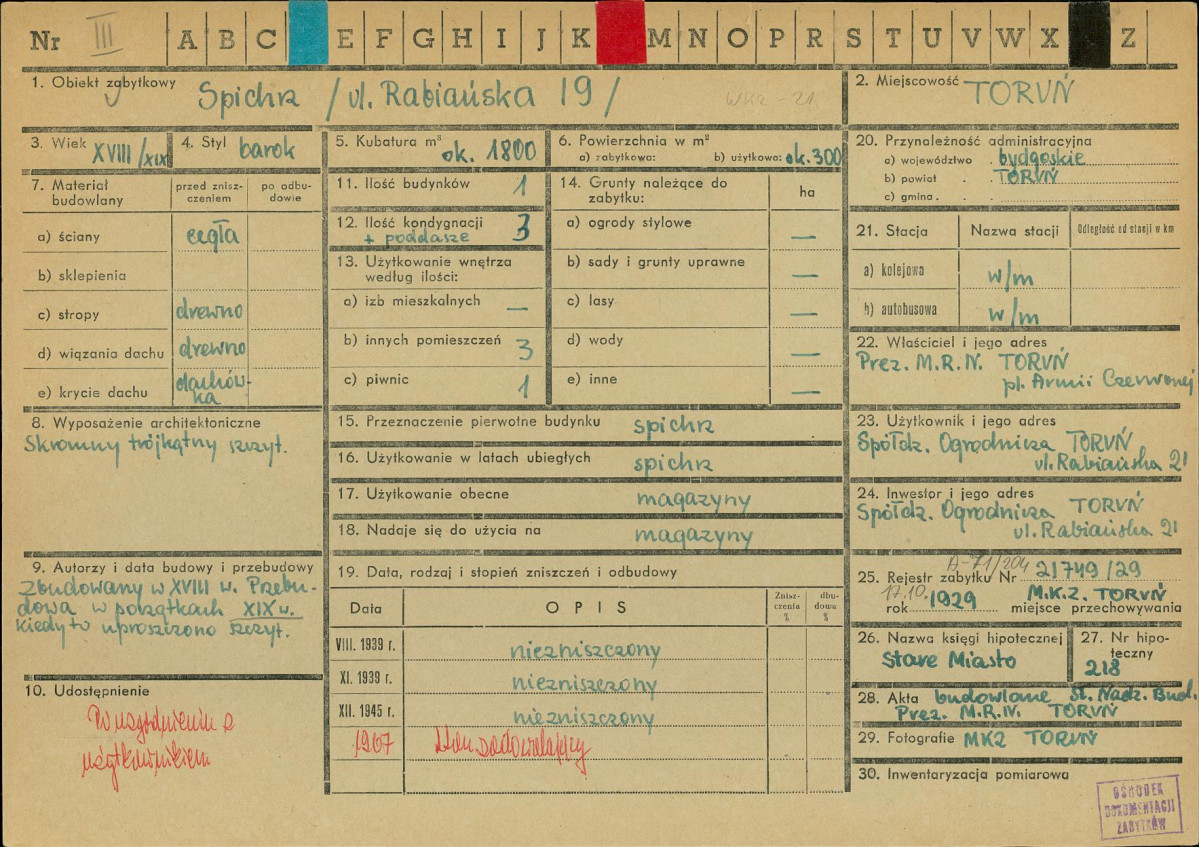 Nr III A B C E F G H I J K M N O P R S T U V W X Z
1. Obiekt zabytkowy Spichrz /ul. Rabiańska 19/
2. Miejscowość TORUŃ
3. Wiek XVIII/XIX
4. Styl barok
5. Kubatura m³ ok. 1800
6. Powierzchnia w m²
a) zabytkowa: b) użytkowa: ok. 300
7. Materiał budowlany
przed zniszczeniem
po odbudowie
a) ściany cegła
b) sklepienia
c) stropy drewno
d) wiązania dachu drewno
e) krycie dachu dachówka
8. Wyposażenie architektoniczne
Skromny trójkątny szczyt.
9. Autorzy i data budowy i przebudowy
Zbudowany w XVIII w. Przebu-
dowa w początkach XIX w.
kiedy to uproszczono szczyt.
10. Udostępnienie
W uzgodnieniu z
użytkownikiem
11. Ilość budynków 1
12. Ilość kondygnacji 3
+ poddasze
13. Użytkowanie wnętrza
według ilości:
a) izb mieszkalnych —
b) innych pomieszczeń 3
c) piwnic 1
14. Grunty należące do
zabytku: ha
a) ogrody stylowe —
b) sady i grunty uprawne —
c) lasy —
d) wody —
e) inne —
15. Przeznaczenie pierwotne budynku spichrz
16. Użytkowanie w latach ubiegłych spichrz
17. Użytkowanie obecne magazyny
18. Nadaje się do użycia na magazyny
19. Data, rodzaj i stopień zniszczeń i odbudowy
Data OPIS Zniszczenia % dbudowa %
VIII. 1939 r. niezniszczony
XI. 1939 r. niezniszczony
XII. 1945 r. niezniszczony
1967 Stan zadowalający
20. Przynależność administracyjna
a) województwo . bydgoskie
b) powiat . . TORUŃ
c) gmina . .
21. Stacja Nazwa stacji Odległość od stacji w km
a) kolejowa w/m
b) autobusowa w/m
22. Właściciel i jego adres
Prez. M.R.N. TORUŃ
pl. Armii Czerwonej
23. Użytkownik i jego adres
Spółdz. Ogrodnicza TORUŃ
ul. Rabiańska 21
24. Inwestor i jego adres
Spółdz. Ogrodnicza TORUŃ
ul. Rabiańska 21
A-71/204
25. Rejestr zabytku Nr 21749/29
17.10.
rok 1929 M.K.Z. TORUŃ
miejsce przechowywania
26. Nazwa księgi hipotecznej
Stare Miasto
27. Nr hipoteczny
218
28. Akta budowlane St. Nadz. Bud.
Prez. M.R.N. TORUŃ
29. Fotografie MKZ TORUŃ
30. Inwentaryzacja pomiarowa
OŚRODEK
DOKUMENTACJI
ZABYTKÓW